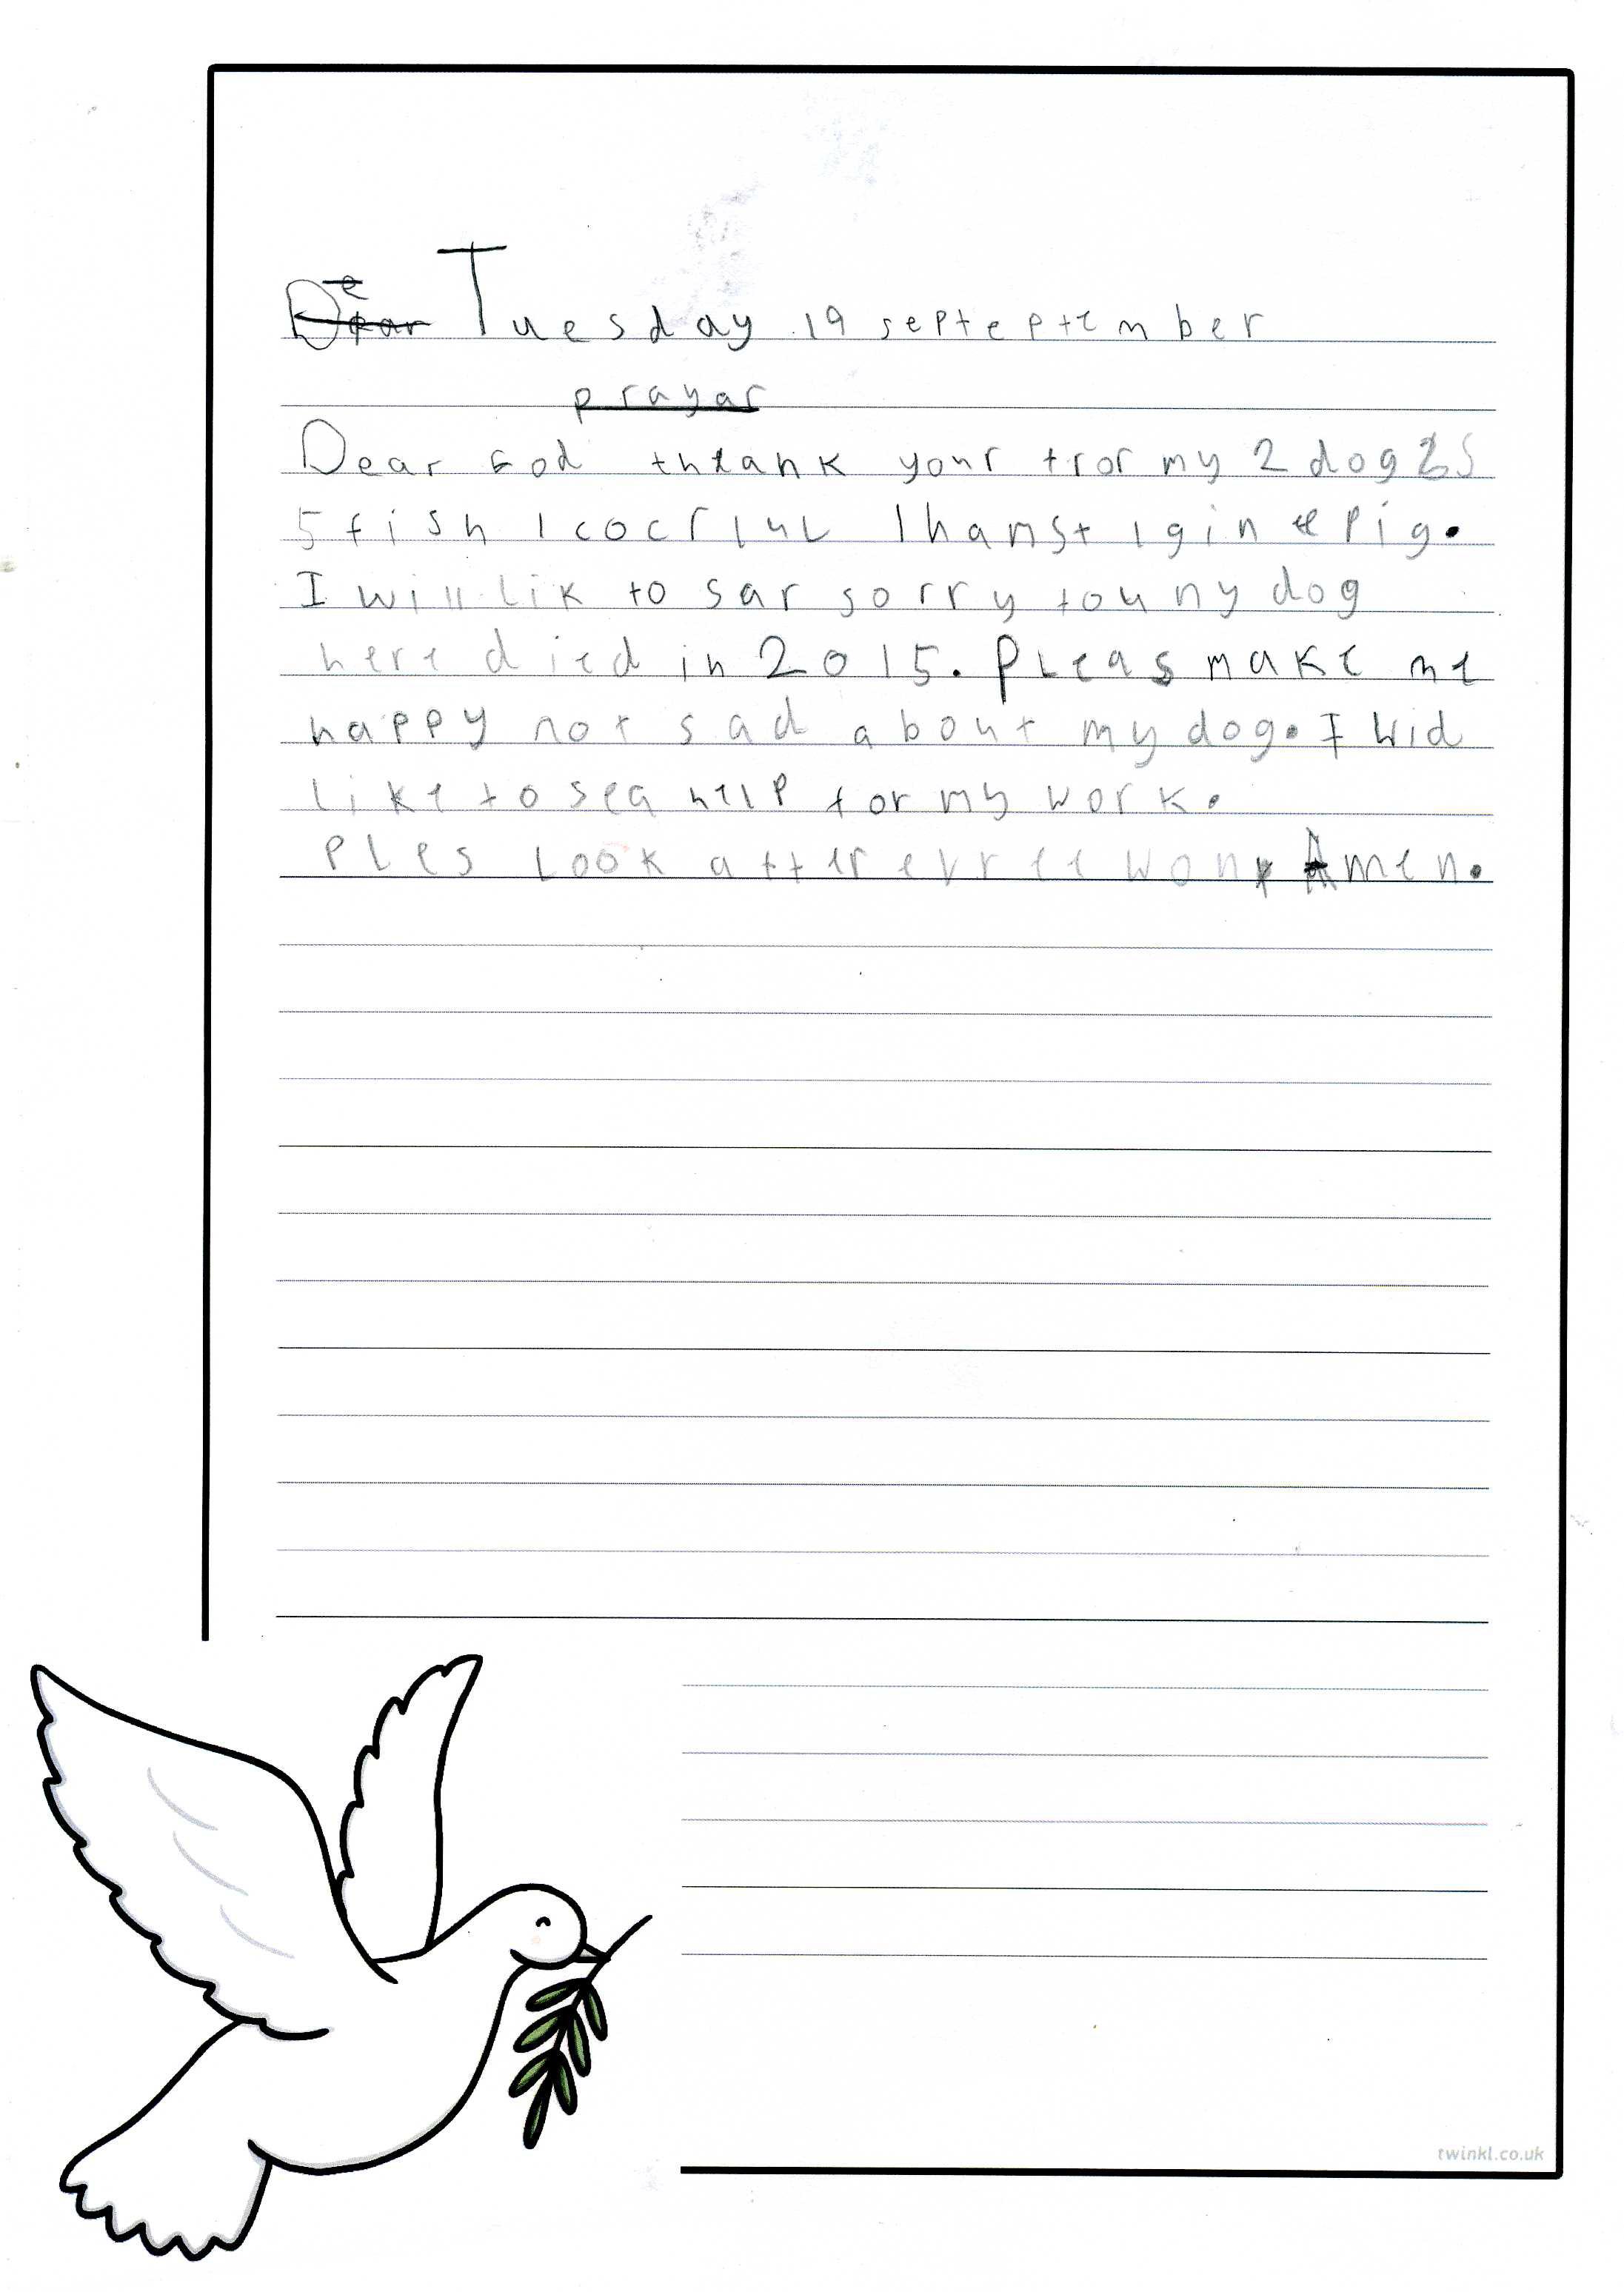 Dear Tuesday 19 septeptember
prayar
Dear God thank your fror my 2 dogs
5 fish 1 1 hamst 1 gin e pig.
I will lik to sar sorry tou my dog
here died in 2015. Pleas make me
happy not sad about my dog. I wid
like to sea help for my work.
Ples Look after evree won Amen.
twinkl.co.uk